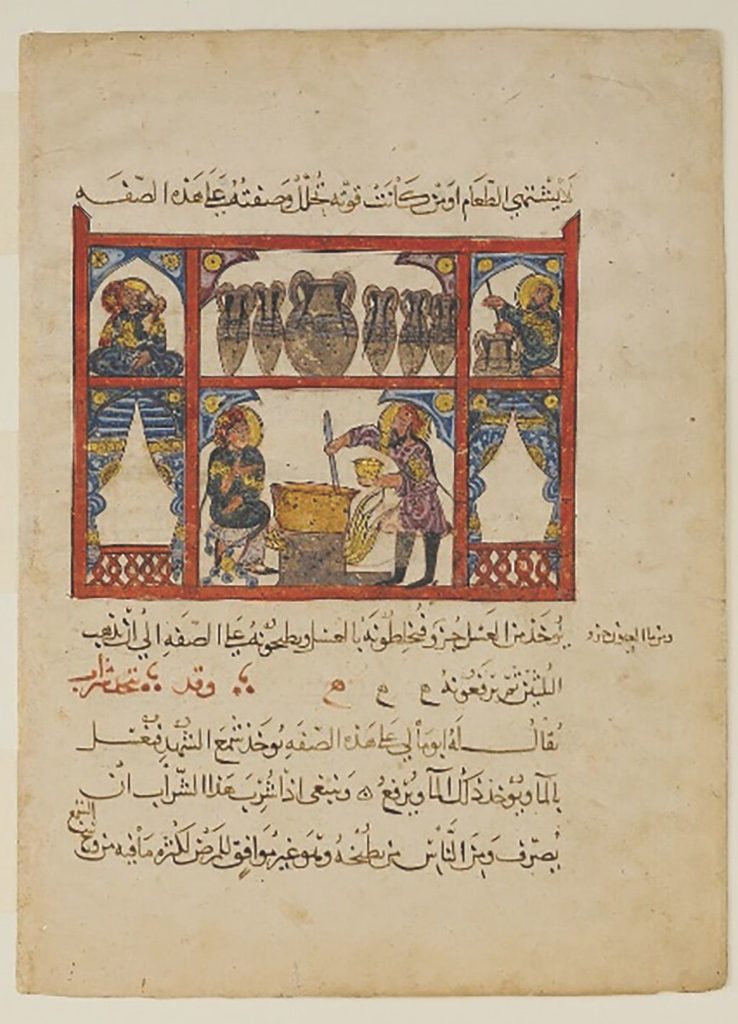 لا يشتهي الطعام او من كانت قوته تخلل وصفته على هذه الصفه
يوخذ من العسل جزو فيخلطونه بالعسل ويطبخونه على الصفه الى ان يذهب
ومن ما العيون جزو
الثلثين ثم يرفعونه ه ه ه وقد يتخذ شراب
يقال له ابومالي على هذه الصفه يوخذ شمع الشهد فيغسل
بالما ويوخذ ذلك الما ويرفع ه وينبغي اذا شرب هذا الشراب ان
يصرف ومن الناس من يطبخه وهو غير موافق للمرض لكثره ما فيه من وسخ
الشمع